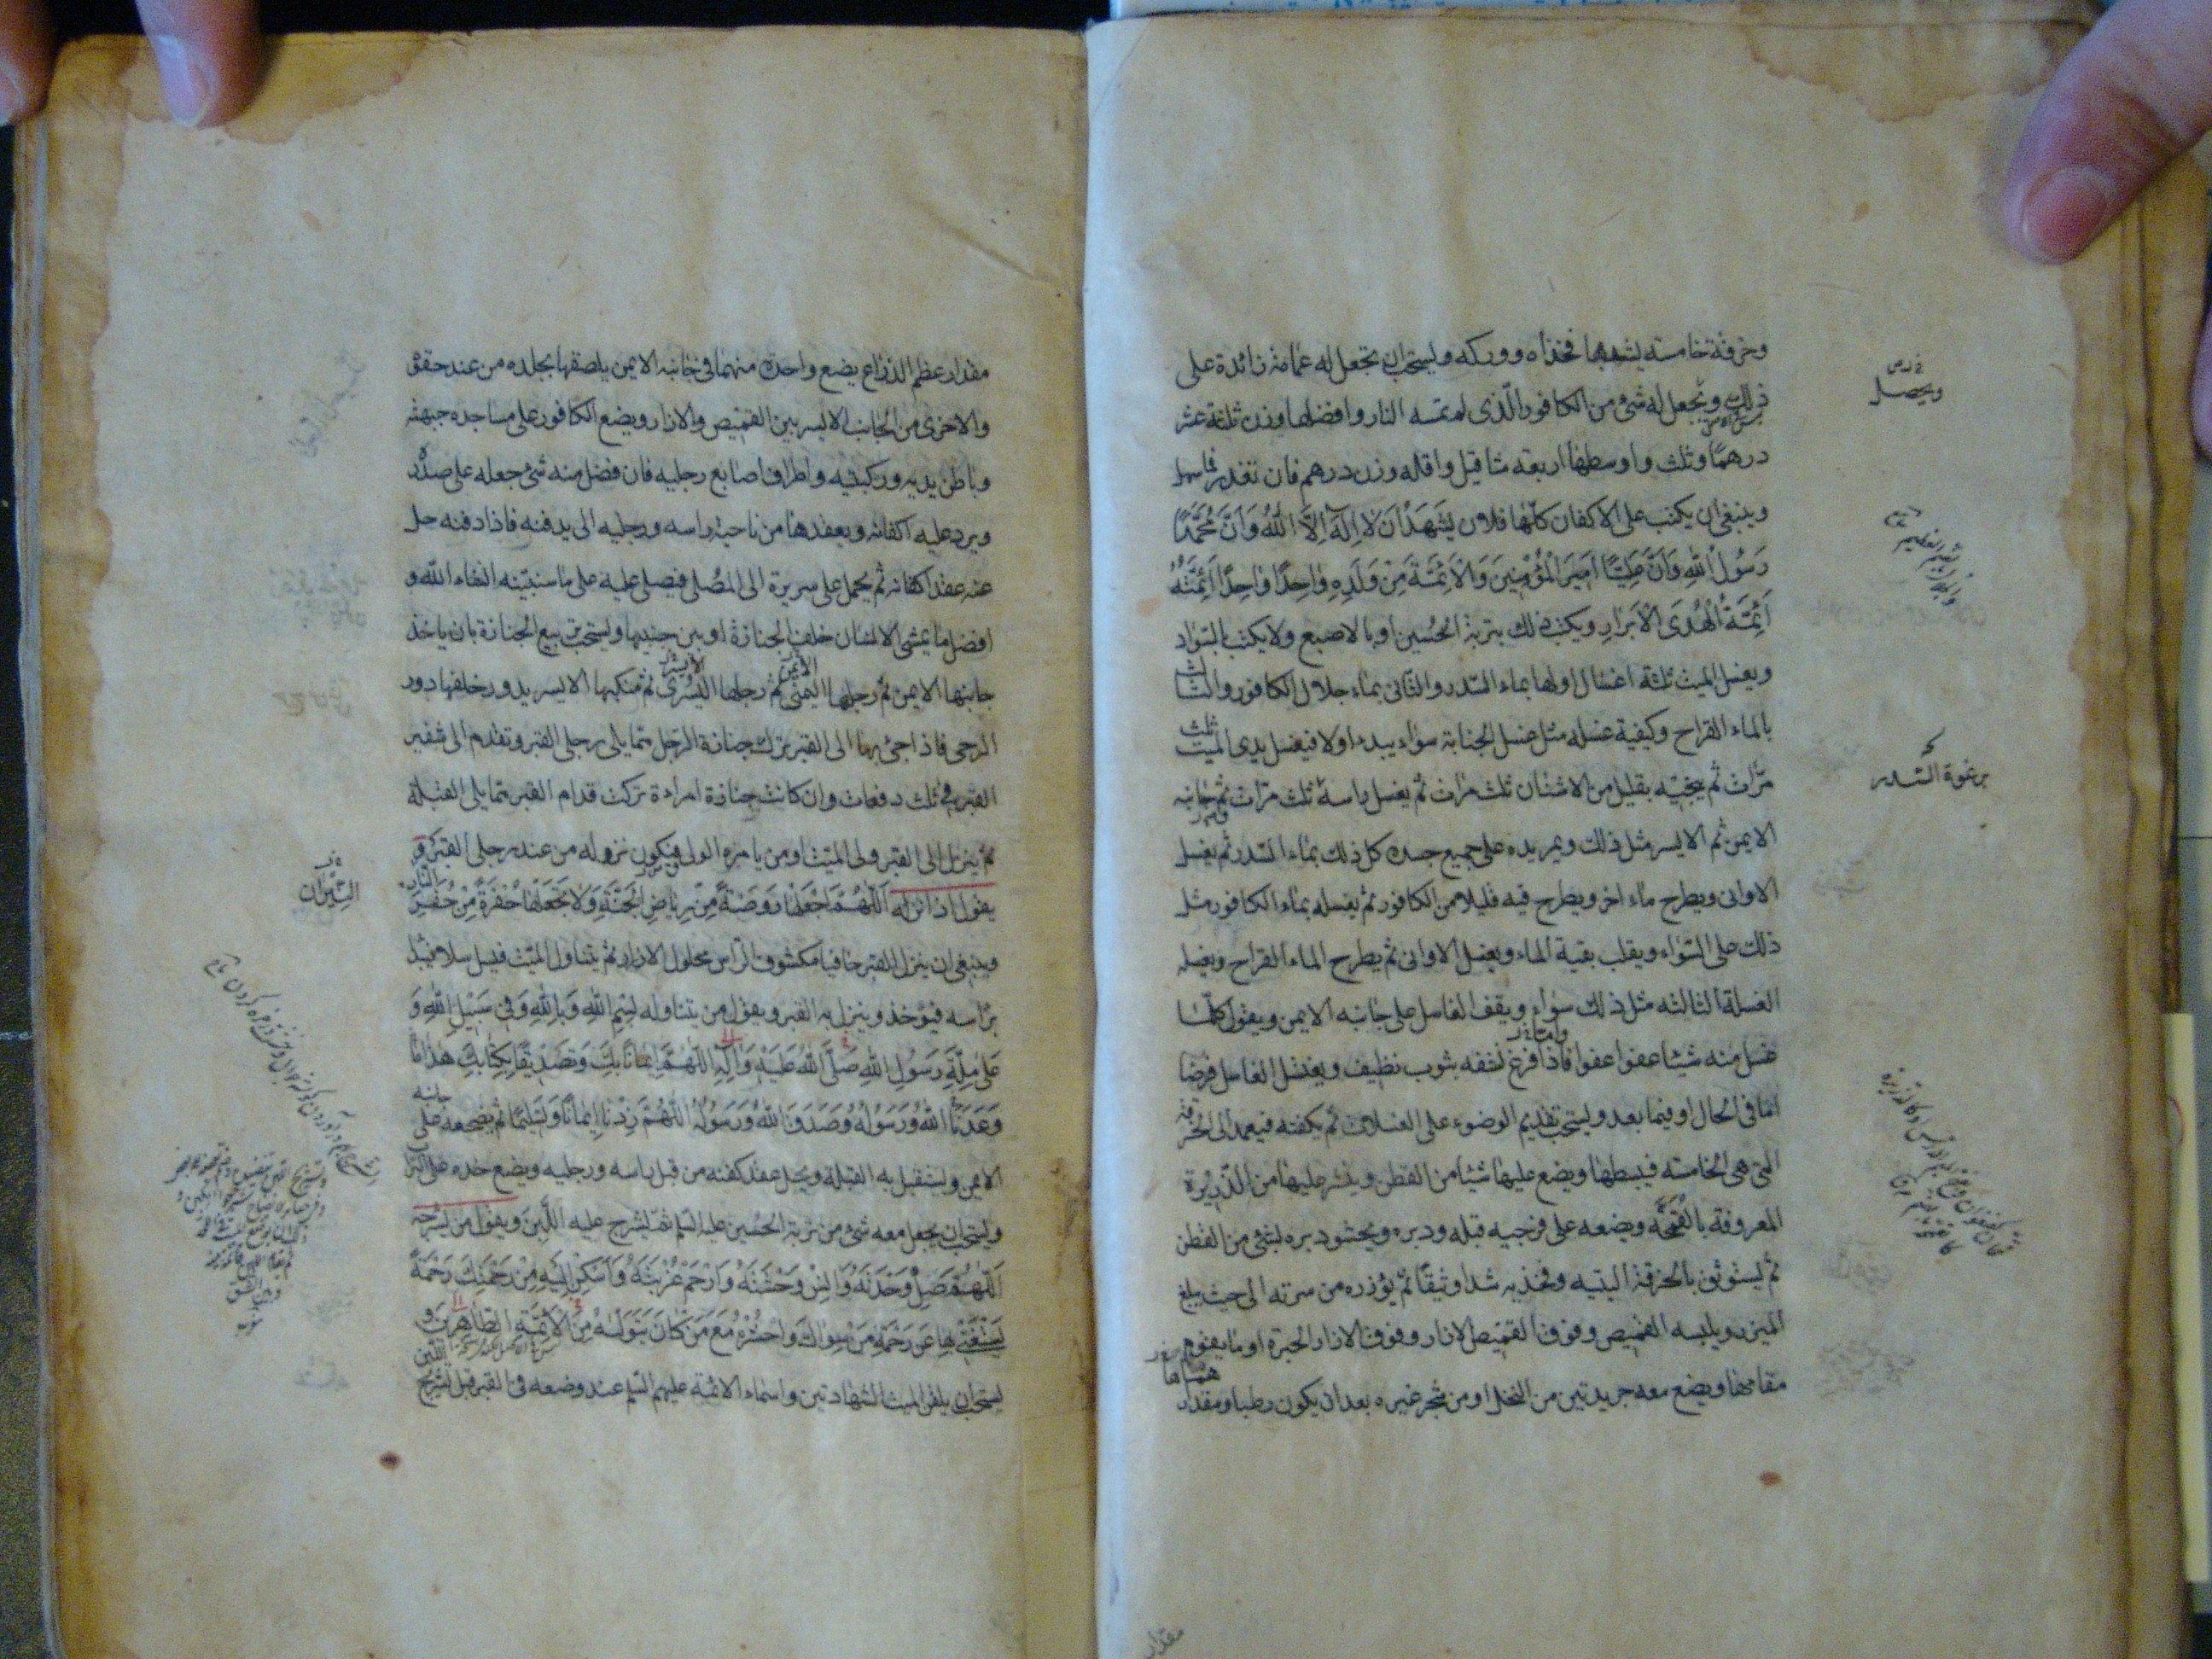 وخرقة خامسة يشد بها فخذاه ووركه ويستحب ان تجعل له عمامة زائدة على
ذلك وتجعل له شئ من الكافور الّذى لم تمسه النار وافضلها وزن ثلثة عشر
درهمًا وثلث واوسطها اربعة مثاقيل واقله وزن درهم فان تعذر فما سهل
وينبغى ان يكتب على الاكفان كلّها فلان يَشْهَدُ اَنْ لا اِلٰهَ اِلاَّ اللّٰهُ وَاَنَّ مُحَمَّدًا
رَسُولُ اللّٰهِ وَاَنَّ عَلِيًّا اَمِيرَ الْمُؤْمِنِينَ وَالاَئِمَّةَ مِنْ وَلَدِهِ وٰاحِدًا وٰاحِدًا اَئِمَّتُهُ
اَئِمَّةُ الْهُدَى الْاَبْرٰارِ ويكتب ذلك بتربة الحُسين او بالاصبع ولا يكتب بالسّواد
ويغسل الميت ثلثة اغسال اولها بماء السّدر والثّانى بماء جلال الكافور والثّالث
بالماء القراح وكيفية غسله مثل غسل الجنابة سواء يبدء اولا فيغسل يدى الميت ثلث
مرّات ثم ينجيه بقليل من الاشنان ثلث مرات ثم يغسل راسه ثلث مرّات ثم جانبه
الايمن ثم الايسر مثل ذلك ويمر يده على جميع جسده كل ذلك بماء السّدر ثم يغسل
الاوانى ويطرح ماء اخر ويطرح فيه قليلا من الكافور ثم يغسله بماء الكافور مثل
ذلك على السّواء ويقلب بقية الماء ويغسل الاوانى ثم يطرح الماء القراح ويغسله
الغسلة الثالثه مثل ذلك سواء ويقف الغاسل على جانبه الايمن ويقول كلّما
غسل منه شيئا عفوا عفوا فاذا فرغ نشفه بثوب نظيف ويغتسل الغاسل فرضا
امّا فى الحال او فيما بعد ويستحب تقديم الوضوء على الغسلات ثم يكفنه فيعمد الى الخرقة
التى هى الخامسة فيبسطها ويضع عليها شيئا من القطن وينثر عليها من الذّريرة
المعروفة بالقُمّحَة ويضعه على فرجيه قبله ودبره ويحشو دبره بشئ من القطن
ثم يستوثق بالخرقة اليتيه وفخذيه شدا وثيقًا ثم يؤزره من سرته الى حيث يبلغ
الميزر ويلبسه القميص وفوق القميص الازار وفوق الازار الحبرة او ما يقوم
مقامها ويضع معه جريدتين من النخل او من شجر غيره بعد ان يكون رطبا ومقدار
ويحصل
برغوة السّدر
مقدار
مقدار عظم الذراع يضع واحدة منهما فى جانبه الايمن يلصقها بجلده من عند حقوه
والاخرى من الجانب الايسر بين القميص والازار ويضع الكافور على مساجده جبهته
وباطن يديه وركبتيه واطراف اصابع رجليه فان فضل منه شئ جعله على صدره
ويرد عليه اكفانه ويعقدها من ناحية راسه ورجليه الى يدفنه فاذا دفنه حل
عنه عقد اكفانه ثم يحمل على سريره الى المصّلى فيصلى عليه على ما سنبيّنه انشاء اللّٰه و
افضل ما يمشى الانسان خلف الجنازة او بين جنبيها ويستحب تربيع الجنازة بان ياخذ
جانبها الايمن ثم رجلها اليمنى ثم رجلها اليُسْرى ثم منكبها الايسر يدور خلفها دور
الايمن
الايسر
الرحى فاذا جئ بها الى القبر ترك جنازة الرّجل ممّا يلى رجلى القبر وتقدم الى شفير
القبر فى ثلث دفعات وان كانت جنازة امراءة تركت قدام القبر ممّا يلى القبلة
ثم ينزل الى القبر ولى الميّت او من يامره الولى فيكون نزوله من عند رجلى القبر و
يقول اذا نزله اَللّهُمَّ اجْعَلْهَا رَوضَةً مِنْ رِيٰاضِ الْجَنَّةِ وَلا تَجْعَلْهٰا حُفْرَةً مِنْ حُفَرِ النّارِ
وينبغى ان ينزل القبر حافيا مكشوف الرّاس محلول الازرار ثم يتناول الميّت فيسل سلا فيبدا
برٰاسه فيؤخذ وينزل به القبر ويقول من يتناوله بِسْمِ اللّٰهِ وَبِاللّٰهِ وَفِى سَبِيْلِ اللّٰهِ وَ
عَلٰى مِلَّةِ رَسُولِ اللّٰهِ صَلَّى اللّٰهُ عَلَيْهِ وَاٰلِهِ اَللّٰهُمَّ اِيمٰانًا بِكَ وَتَصْدِيقًا بِكِتٰابِكَ هٰذَا مٰا
وَعَدَنَا اللّٰهُ وَرَسُولُهُ وَصَدَقَ اللّٰهُ وَرَسُولُهُ اَللّٰهُمَّ زِدْنٰا اِيمٰانًا وَتَسْلِيمًا ثم يضجعه على جانبه
الايمن ويستقبل به القبلة ويحل عقد كفنه من قبل راسه ورجليه ويضع خده على التراب
ويستحب ان يجعل معه شئ من تربة الحُسين عليه السّلم ثمّ يشرج عليه اللَّبِنَ ويقول من يشرجه
اَللّٰهُمَّ صِلْ وَحْدَتَهُ وَاٰنِسْ وَحْشَتَهُ وَارْحَمْ غُرْبَتَهُ وَاَسْكِنْ اِلَيْهِ مِنْ رَحْمَتِكَ رَحْمَةً
يَسْتَغْنِى بِهٰا عَنْ رَحْمَةِ مَنْ سِوٰاكَ وَاحْشُرْهُ مَعَ مَنْ كٰانَ يَتَوَلّاهُ مِنَ الْاَئِمَّةِ الطّٰاهِرِينَ و
يستحب ان يلقن الميت الشهادتين واسماء الائمة عليهم السّلم عند وضعه فى القبر قبل تشريج اللّبن
النّيران